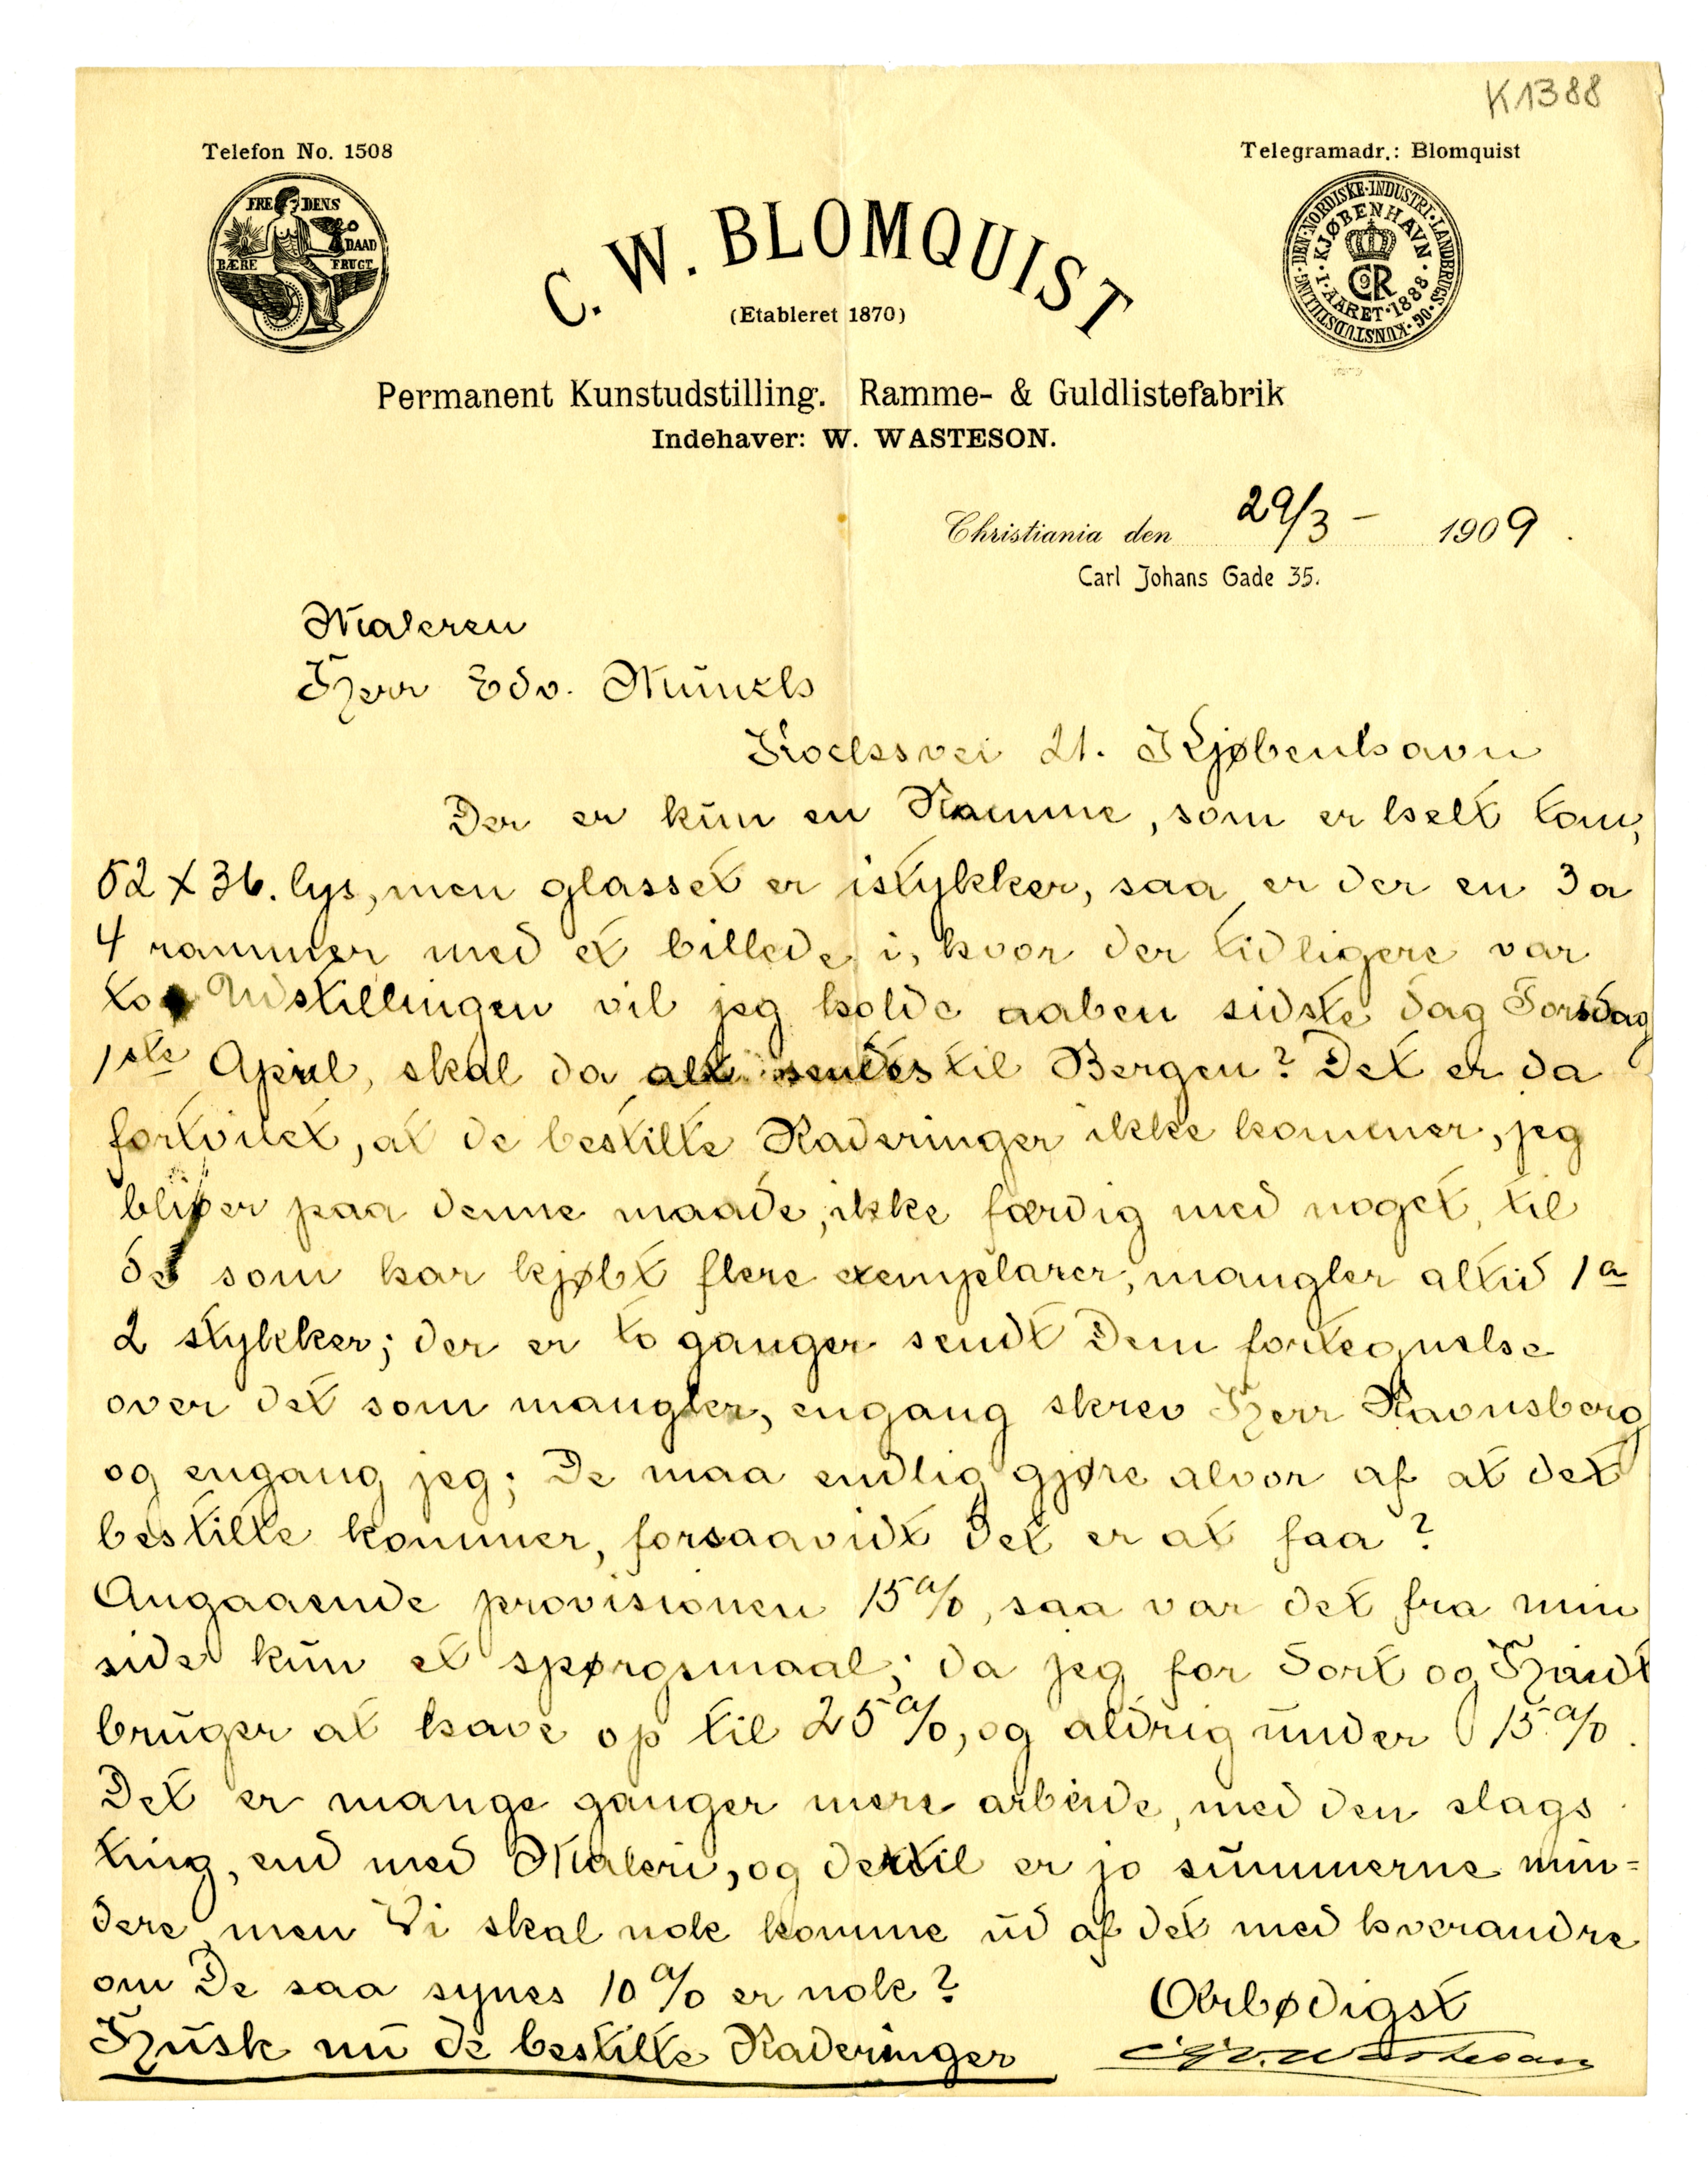 K1388
Telefon No. 1508
Telegramadr.: Blomquist
FREDENS DAAD BÆRE FRUGT
DEN·NORDISKE·INDUSTRI·LANDBRUGS·OG·KUNSTUDSTILLING·
·I·KJØBENHAVN·
I·AARET·1888
C. W. BLOMQUIST
(Etableret 1870)
Permanent Kunstudstilling. Ramme- & Guldlistefabrik
Indehaver: W. WASTESON.
Christiania den 29/3 – 1909.
Carl Johans Gade 35.
Maleren
Herr Edv. Munch
Kochsvei 21. Kjøbenhavn
Der er kun en Ramme, som er helt tom,
52 x 36. lys, men glasset er istykker, saa er der en 3 a
4 rammer med et billede i, hvor der tidligere var
to Udstillingen vil jeg holde aaben sidste dag Torsdag
1ste April, skal da alt sendes til Bergen? Det er da
fortvilet, at de bestilte Raderinger ikke kommer, jeg
bliver paa denne maade, ikke færdig med noget, til
de som har kjøbt flere exemplarer, mangler altid 1 a
2 stykker; der er to ganger sendt Dem fortegnelse
over det som mangler, engang skrev Herr Ravnsberg
og engang jeg; De maa endlig gjøre alvor af at det
bestilte kommer, forsaavidt det er at faa?
Angaaende provisionen 15%, saa var det fra min
side kun et spørgsmaal; da jeg for Sort og Hvidt
bruger at have op til 25%, og aldrig under 15.%.
Det er mange ganger mere arbeide, med den slags
ting, end med Maleri, og dertil er jo summerne min=
dere, men Vi skal nok komme ud af det med hverandre
om De saa synes 10% er nok?
Ærbødigst
Husk nu de bestilte Raderinger
Wasteson